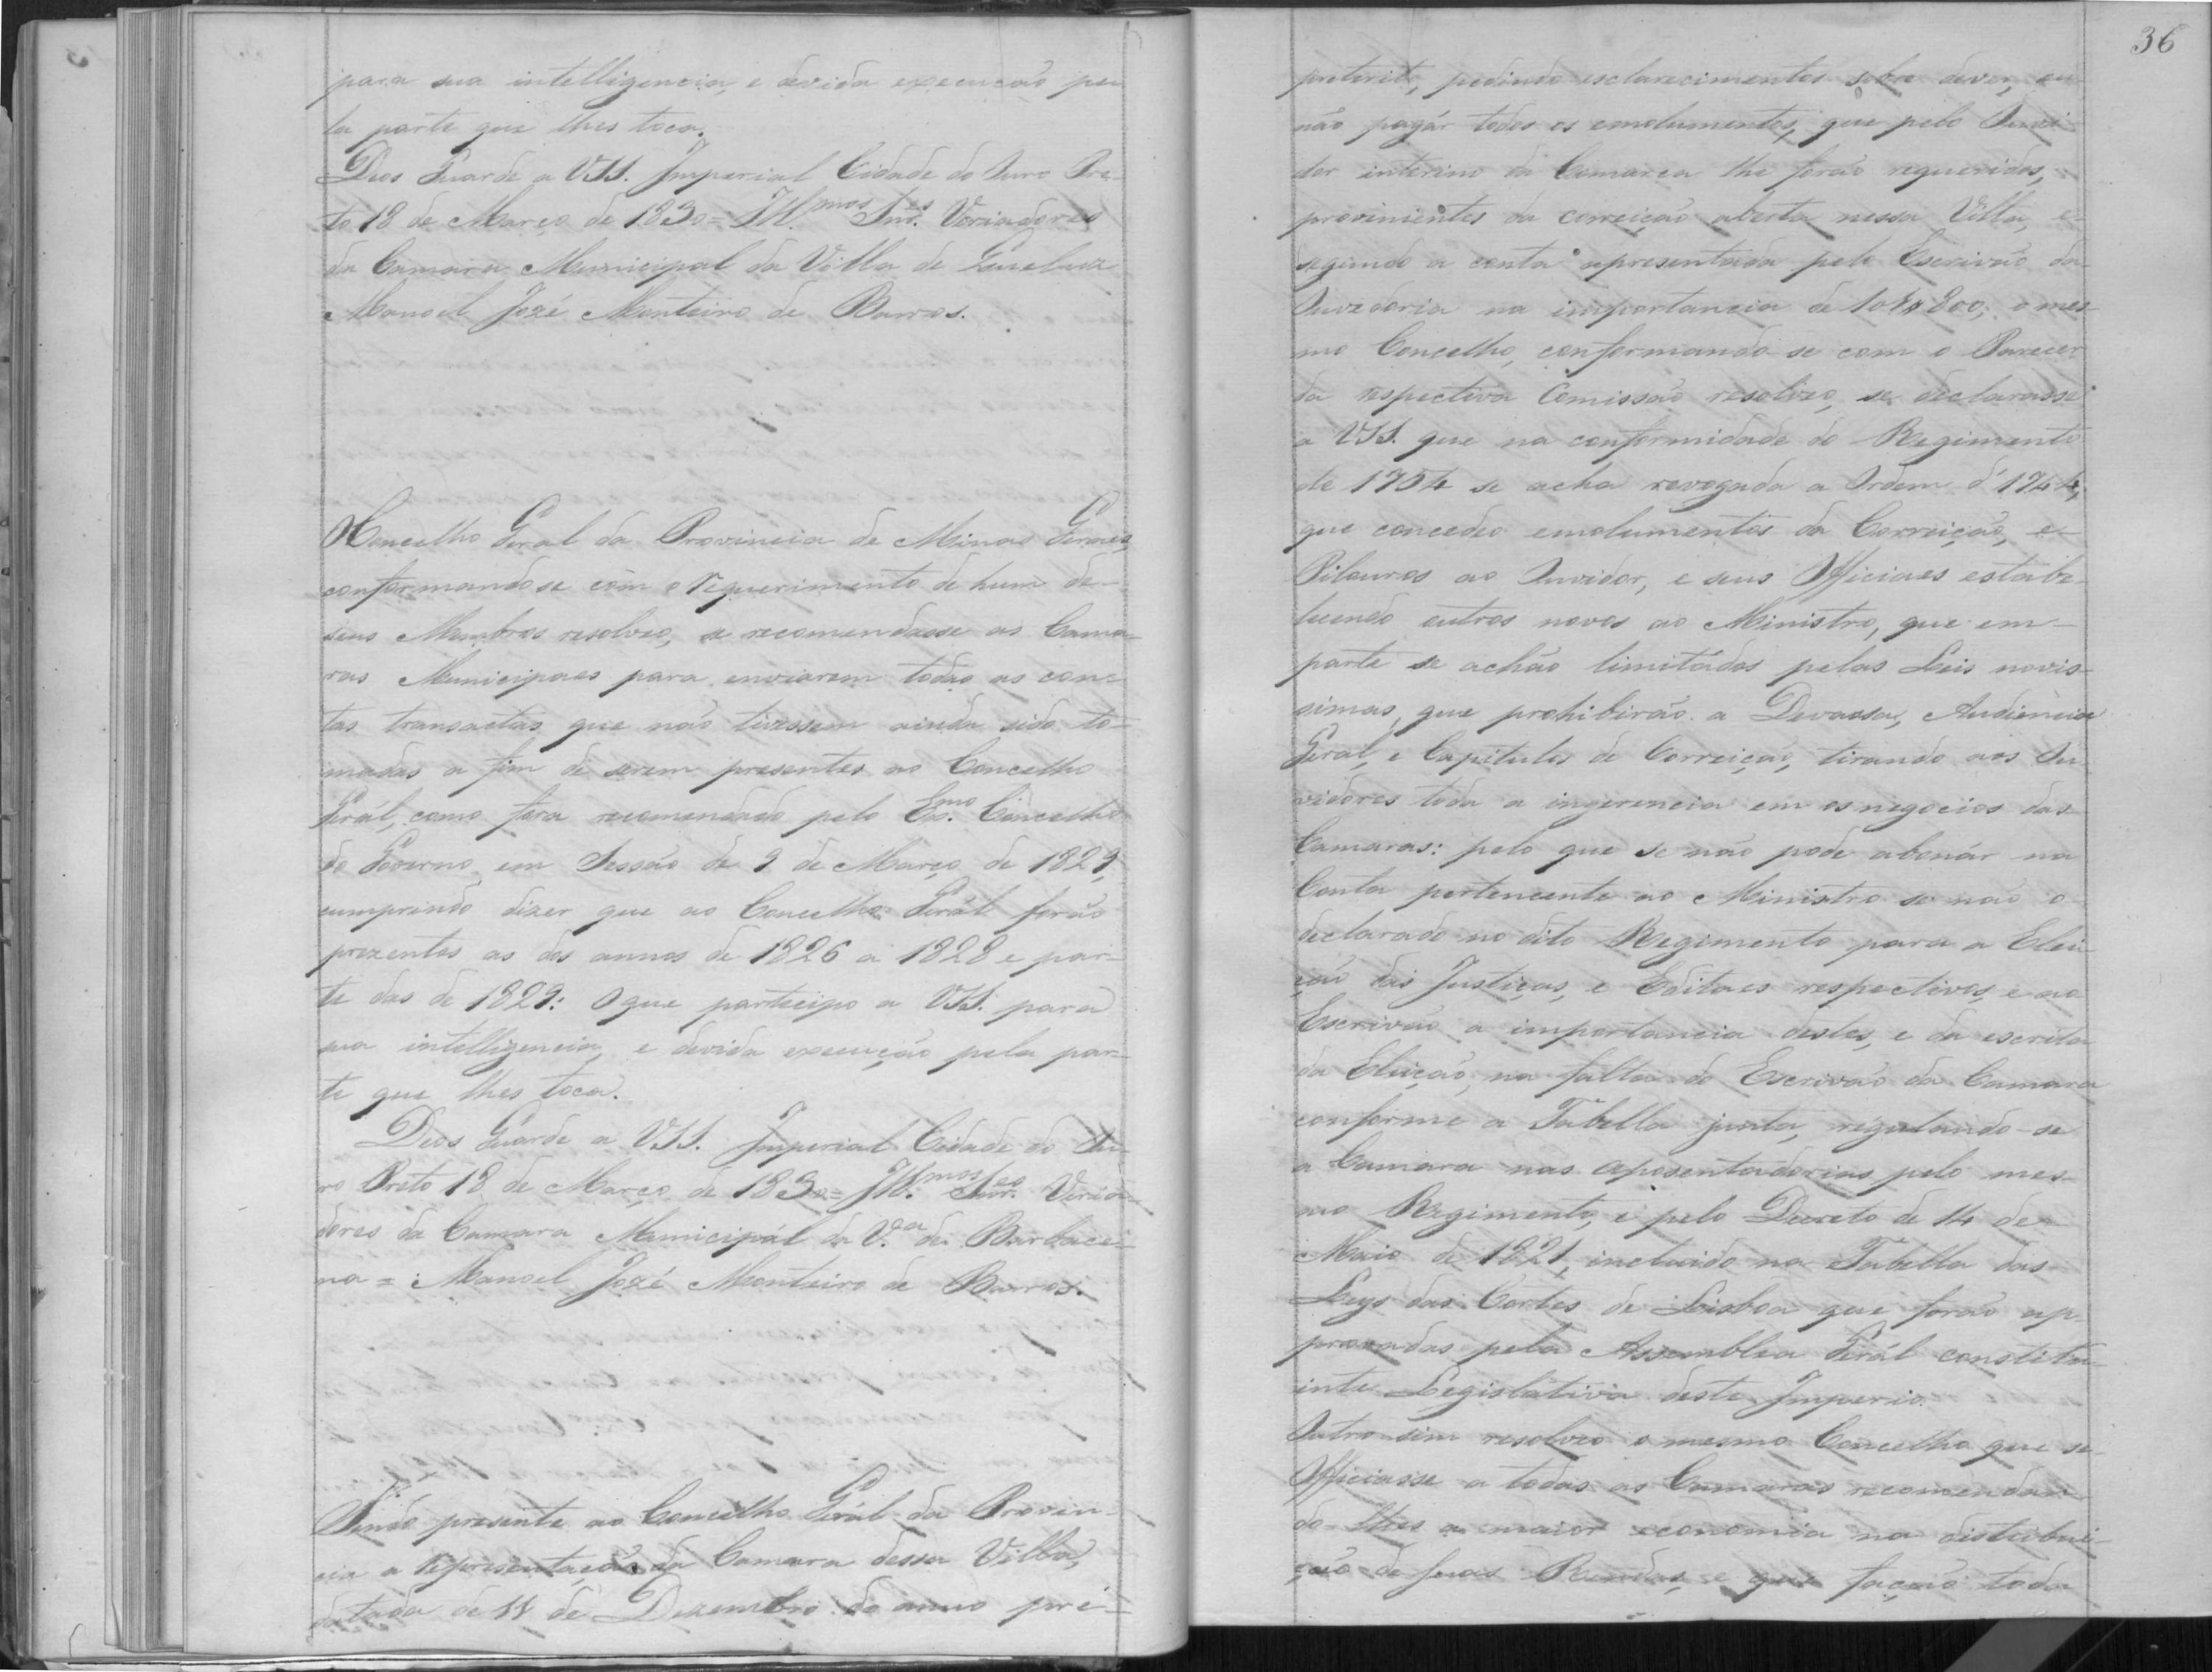 para sua intelligencia, e devida execução pe
la parte que lhes toca.
Deos Guarde a VSS. Imperial Cidade do Ouro Pre-
to 18 de Março de 1830= Ill.mos Snr.es Veriadores
da Camara Municipal da Villa de Queluz
Manoel Jozé Monteiro de Barros.
O Concelho Geral da Provincia de Minas Geraes,
conformandose com o requerimento de hum de
seus Membros resolveo, se recomendasse as Cama-
ras Municipaes para enviarem todas as con-
tas transactas que não tivessem ainda sido to-
madas a fim de serem presentes ao Concelho
Gerál, como fora recomendado pelo Ex.mo Concelho
do Governo em Sessão de 9 de Março de 1829,
cumprindo dizer que ao Concelho Gerál forão
prezentes as dos annos de 1826 a 1828 e par-
te das de 1829: O que participo a VSS. para
sua intelligencia, e devida execução pela par-
te que lhes toca.
Deos Guarde a VSS. Imperial Cidade do Ou-
ro Preto 18 de Março de 1830= Ill.mos Snr.es Veria-
dores da Camara Municipál da V.a de Barbace-
na = Manoel Jozé Monteiro de Barros.
Sendo presente ao Concelho Gerál da Provin-
cia a representação da Camara dessa Villa,
datada de 11 de Dezembro do anno pre-
36
preterito, pedindo esclarecimentos sobre dever, ou
não pagár todos os emolumentos, que pelo Ouvi-
dor interino da Comarca lhe forão requeridos,
provinientes da correição aberta nessa Villa, e
segundo a conta apresentada pelo Escrivão da
Ouvedoria na importancia de 104$800; o mes-
mo Concelho, conformando-se com o Parecer
da respectiva Comissão resolveo, se declarasse
a VSS. que na conformidade do Regimento
de 1754 se acha revogada a Ordem d'1744,
que concedeo emolumentos da Correição, e
Pilouros ao Ouvidor, e seus Officiaes estabe-
lecendo outros novos ao Ministro, que em
parte se achão limitados pelas Leis novis-
simas, que prohibirão a Devassa, Audiencia
Geral, e Capitulos de Correição, tirando aos Ou
vidores toda a ingerencia em os negocios das
Camaras: pelo que se não pode abonár na
Conta pertencente ao Ministro se não o
declarado no dito Regimento para a Elei-
ção das Justiças, e Editaes respectivos, e ao
Escrivão a importancia destes, e da escrita
da Eleição, na falta do Escrivão da Camara
conforme a Tabella junta, regulando-se
a Camara nas aposentadorias pelo mes-
mo Regimento, e pelo Decreto de 14 de
Maio de 1821, incluido na Tabella das
Leys das Cortes de Lisboa que forão ap-
provadas pela Assemblea Gerál constitu-
inte Legislativa deste Imperio.
Outro sim resolveo o mesmo Concelho que se
Officiasse a todas as Camaras recomendan
do-lhes a maior economia na distribui-
ção de suas Rendas, e que fação toda